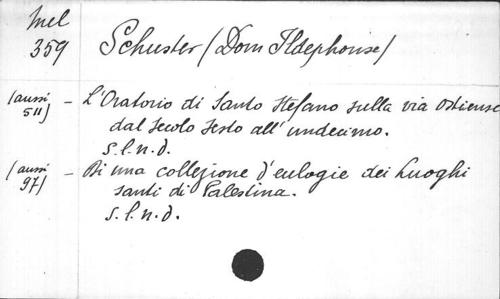 Mel
359
Schuster (Dom Ildephonse)
(aussi 511) - L'Oratorio di Santo Stefano sulla via Ostiense
dal secolo sesto all'undecimo.
s.l.n.d.
(aussi 97) - Di una collezione d'eulogie dei Luoghi
santi di Palestina.
s.l.n.d.